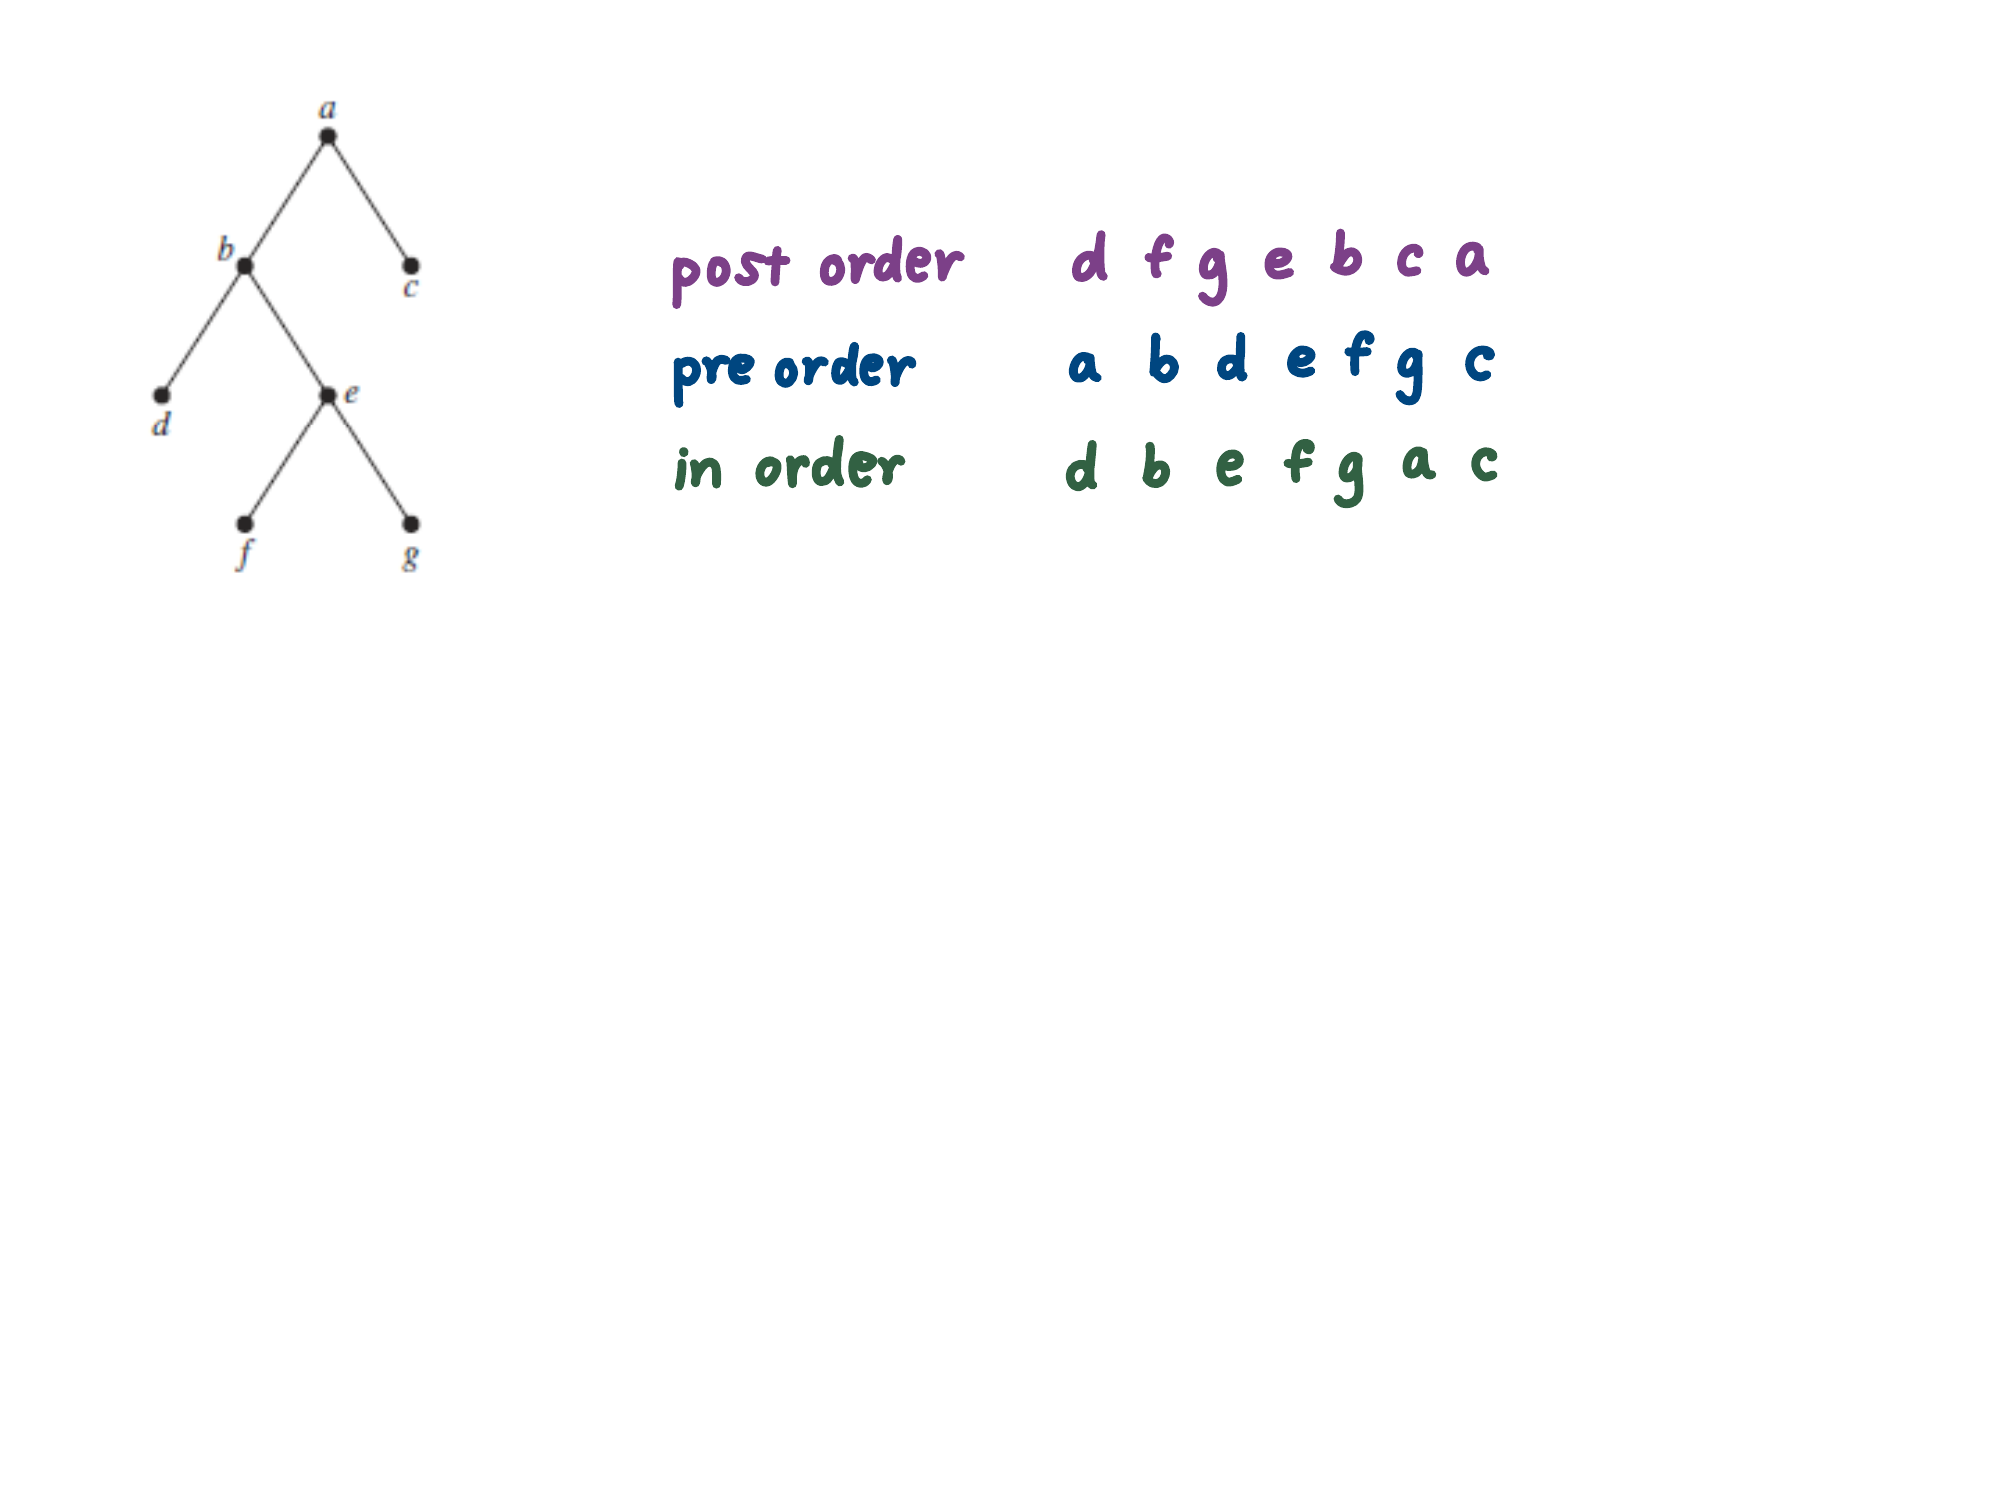 a
b
c
d
e
f
g
post order d f g e b c a
pre order a b d e f g c
in order d b e f g a c